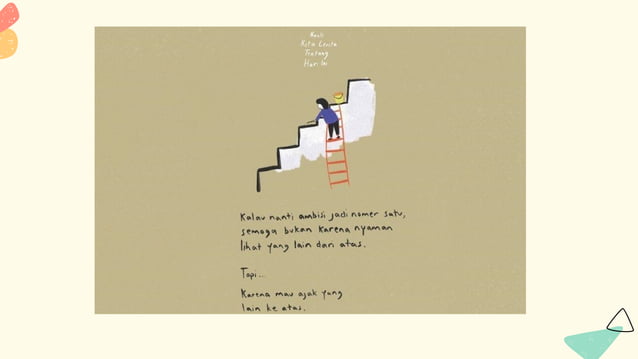 Nanti
Kita Cerita
Tentang
Hari Ini
Kalau nanti ambisi jadi nomer satu,
semoga bukan karena nyaman
lihat yang lain dari atas.
Tapi...
Karena mau ajak yang
lain ke atas.